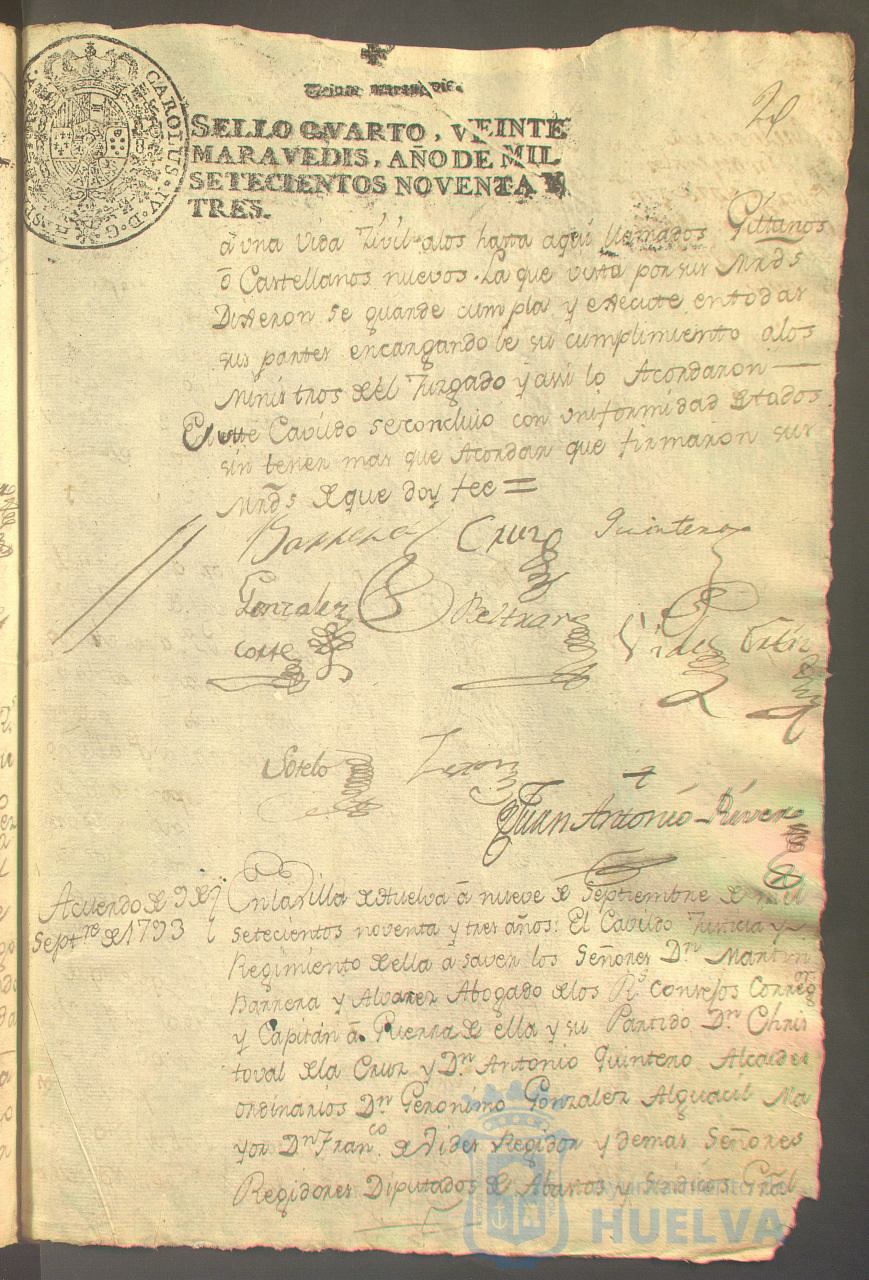 CAROLUS·IV·D·G
HISP
20
SELLO QVARTO, VEINTE
MARAVEDIS, AÑO DE MIL
SETECIENTOS NOVENTA Y
TRES.
á una vida Zivil alos hasta aqui llamados Gittanos
ó Castellanos nuevos. La que vista por sus Mrds
Dixeron se guarde cumpla y execute entodas
sus partes encargando le su cumplimiento alos
Ministros del Juzgado y assi lo Acordaron
En este Cavildo se concluió con uniformidad de todos
sin tener mas que Acordar que firmaron sus
Mrds de que doy fee =
Barrera Cruz Quintero
Gonzalez Beltran
Corte Vides
Sotelo
Juan Antonio Rivero
Acuerdo de 9 de
Septre de 1793
En la Villa de Huelva á nueve de Septiembre de mil
setecientos noventa y tres años: El Cavildo Justicia y
Regimiento de ella á saver los Señores Dn Martin
Barrera y Alvarez Abogado de los Rs Consejos Correg.or
y Capitán á Guerra de ella y su Partido Dn Chris
toval de la Cruz y Dn Antonio Quintero Alcaldes
ordinarios Dn Geronimo Gonzalez Alguacil Ma
yor Dn Franco de Vides Regidor y demas Señores
Regidores Diputados de Abastos y Sindicos Gral
Ayuntamiento
HUELVA